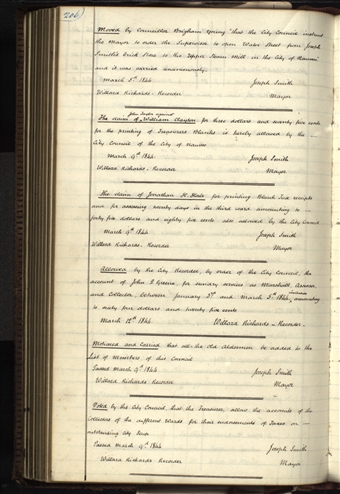 206
Moved by Councillor Brigham Young that the City Council instruct
the Mayor to order the Supervisor to open Water Street from Joseph
Smith's Brick Store to the Upper Steam Mill in the City of Nauvoo
and it was carried unanimously.
March 5th 1844
Joseph Smith
Willard Richards. Recorder
Mayor
John Taylor
The claim of William Clayton for three dollars and seventy five cents
for the printing of Inquirers Blanks is hereby allowed by the
City Council of the City of Nauvoo
March 9th 1844
Joseph Smith
Willard Richards. Recorder
Mayor
The claim of Jonathan H. for printing Blank Tax receipts
and for assessing twenty days in the third ward amounting to
forty five dollars and eighty five cents also allowed by the City Council
March 9th 1844
Joseph Smith
Willard Richards. Recorder
Mayor
Allowed by the City Recorder, by order of the City Council, the
account of John P Greene, for sundry services as Marshall, Assessor,
and Collector, between January 3d and March 5th 1844, amounting
to sixty four dollars and twenty five cents
March 12th 1844
Willard Richards. Recorder.
Motioned and Carried that all the Old Aldermen be added to the
List of Members of this Council
Passed March 9th 1844
Joseph Smith
Willard Richards Recorder
Mayor
Voted by the City Council, that the Treasurer, allow the accounts of the
Collectors of the different Wards for their assessments of Taxes on
outstanding City Scrip
Passed March 9th 1844
Joseph Smith
Willard Richards Recorder
Mayor